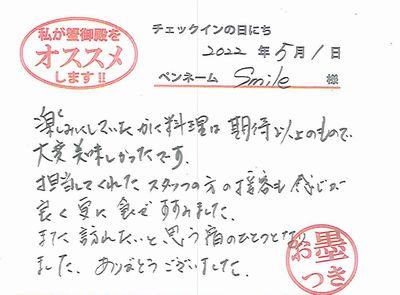 私が蟹御殿を
オススメ
します!!
チェックインの日にち
2022年5月1日
ペンネーム Smile 様
楽しみにしていたかに料理は期待以上のもので、
大変美味しかったです。
担当してくれたスタッフの方の接客も感じが
良く更に食がすすみました。
また訪れたいと思う宿のひとつとなり
ました。ありがとうございました。
お墨
つき